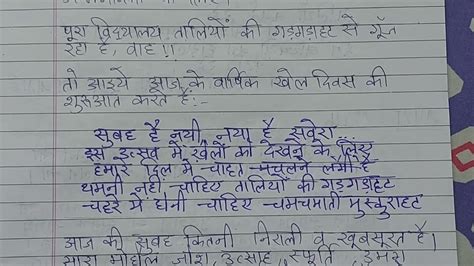 पूरा विद्यालय तालियों की गड़गड़ाहट से गूँज
रहा है, वाह !!
तो आइये आज के वार्षिक खेल दिवस की
शुरुआत करते हैं:-
सुबह है नयी, नया है सवेरा ...
इस उत्सव में खेलों को देखने के लिए
हमारे दिल में चाहत मचलने लगी है
थमनी नहीं चाहिए तालियों की गड़गड़ाहट
चहरे में बनी चाहिए चमचमाती मुस्कुराहट
आज की सुबह कितनी निराली व खूबसूरत है।
सारा माहौल जोश, उत्साह, स्फूर्ति, उमंग